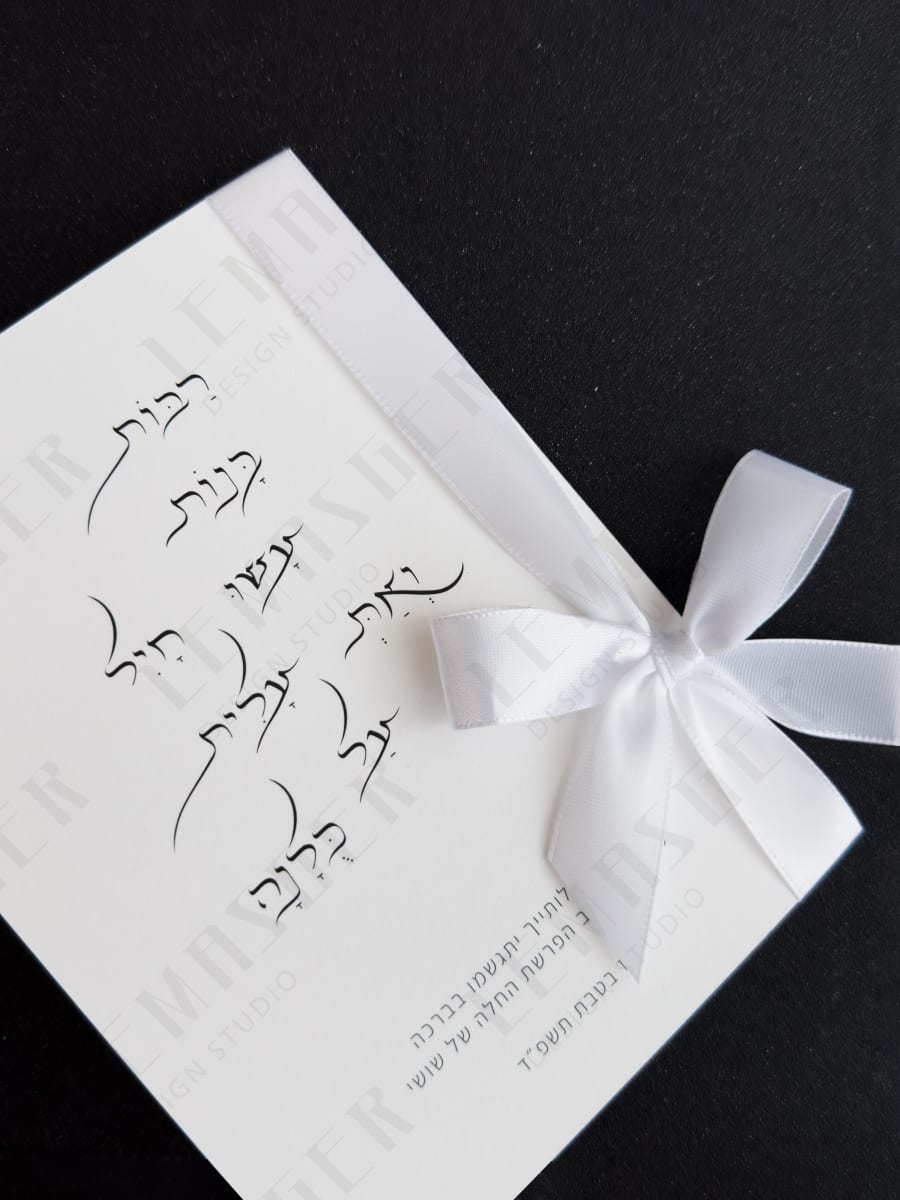 רַבּוֹת
בָּנוֹת
עָשׂוּ חָיִל
וְאַתְּ עָלִית
עַל
כֻּלָּנָה
לותייך יתגשמו בברכה
ב הפרשת החלה של שושי
בטבת תשפ״ד
DESIGN STUDIO